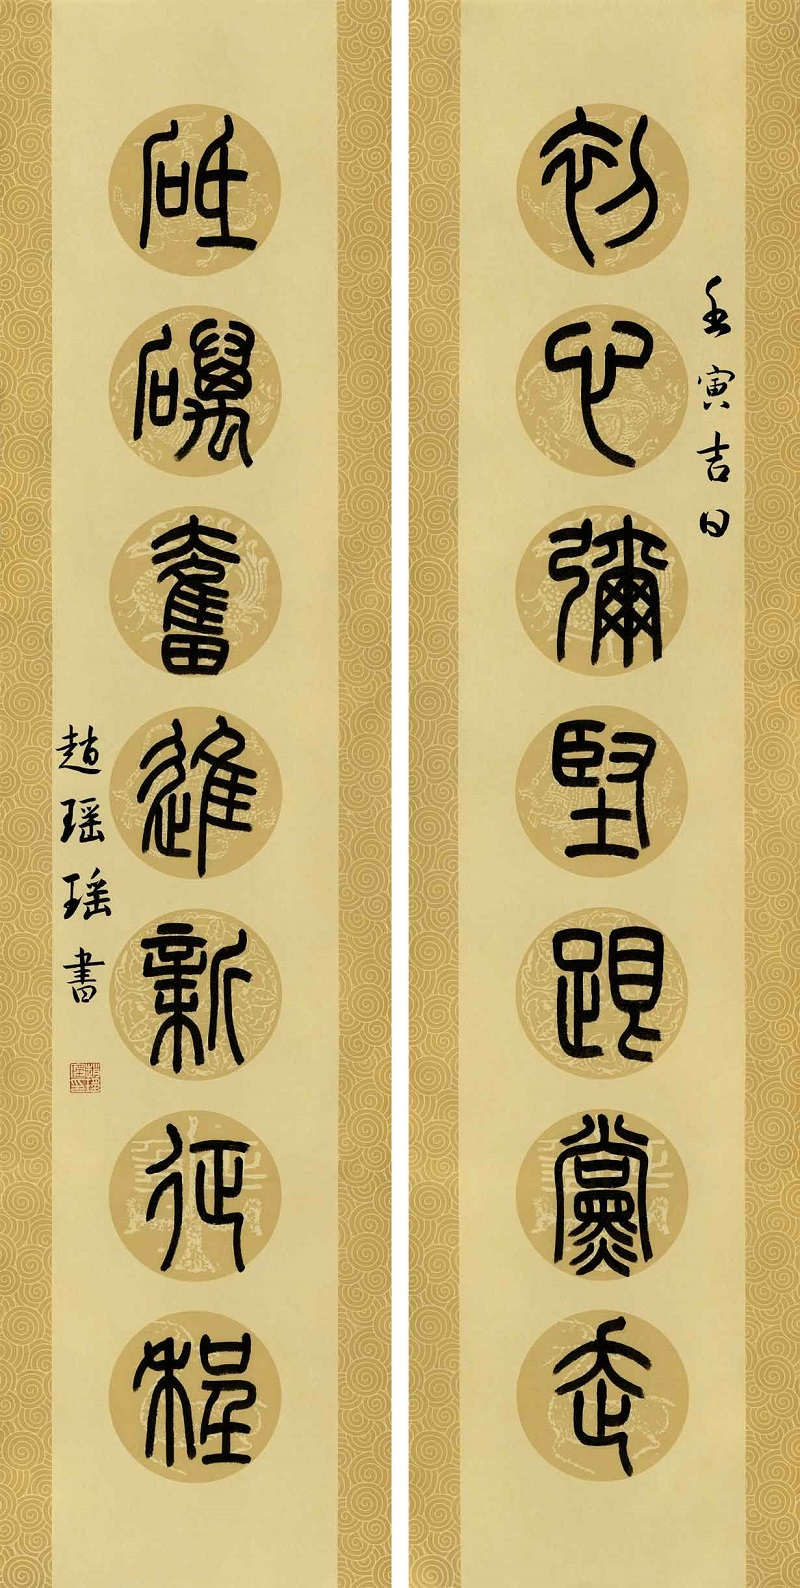 壬寅吉日
初心彌堅跟黨走
砥礪奮進新征程
趙瑶瑶書